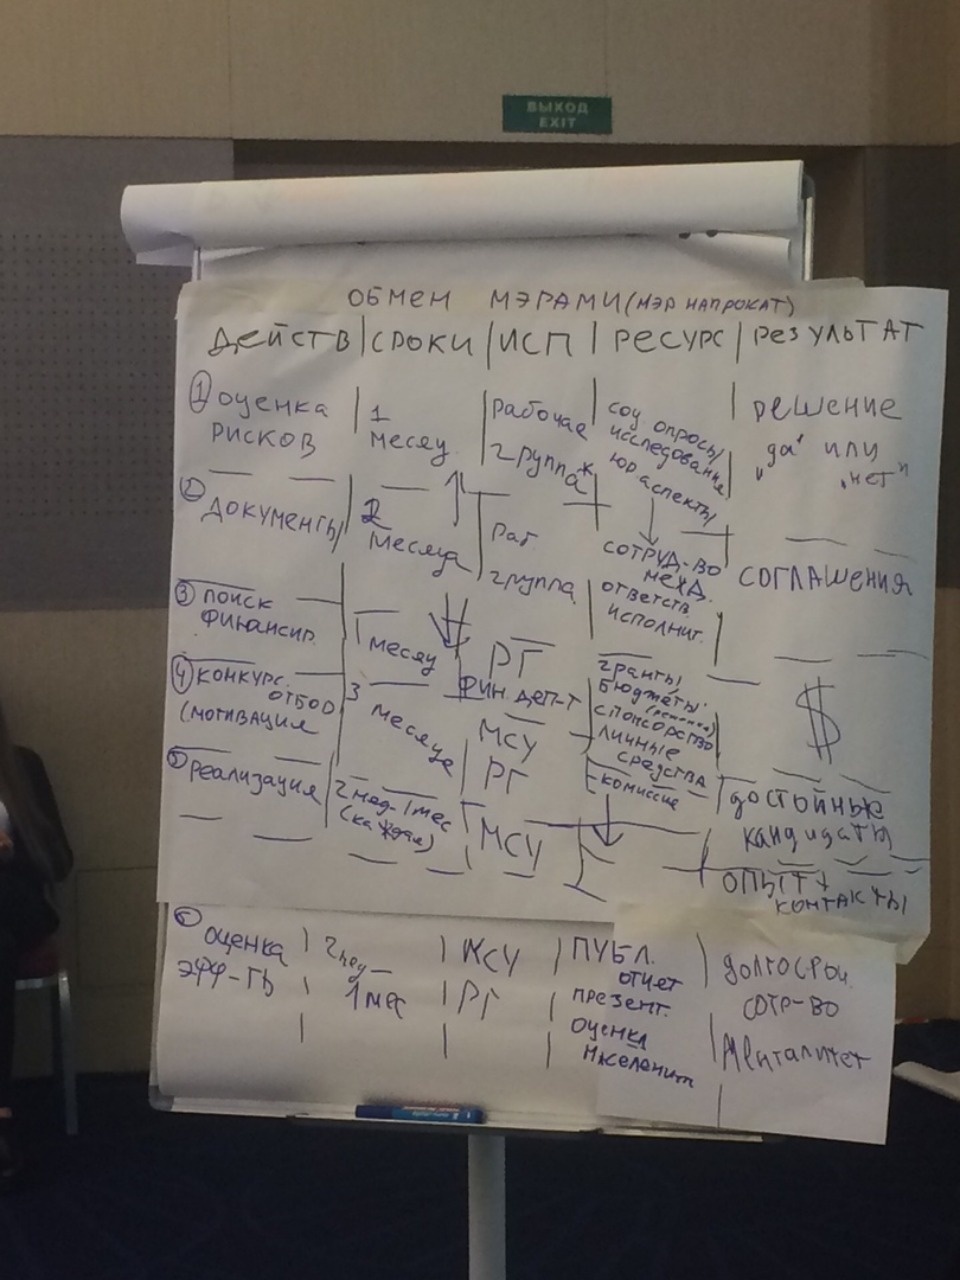 ВЫХОД
EXIT
ОБМЕН МЭРАМИ (МЭР НАПРОКАТ)
ДЕЙСТВ | СРОКИ | ИСП | РЕСУРС | РЕЗУЛЬТАТ
1 оценка рисков
1 месяц
Рабочая группа*
соц опросы
исследования
юр аспекты
решение
"да" или
"нет"
2 документы
2 месяца
Раб.
группа
СОТРУД-ВО
МЕЖД.
ответств.
исполнит.
СОГЛАШЕНИЯ
3 поиск
финансир.
1 месяц
РГ
ФИН. ДЕП-Т
гранты
бюджеты
спонсорство
личные
средства
$
4 конкурс.
отбор
(мотивация
3 месяца
МСУ
РГ
комиссия
достойные
кандидаты
5 реализация
2 нед-1 мес
(каждая)
МСУ
ОПЫТ +
КОНТАКТЫ
оценка
ЭФФ-ТЬ
2 нед –
1 мес
МСУ
РГ
ПУБЛ.
отчет
презент.
оценка
населения
долгосроч.
СОТР-ВО
Менталитет